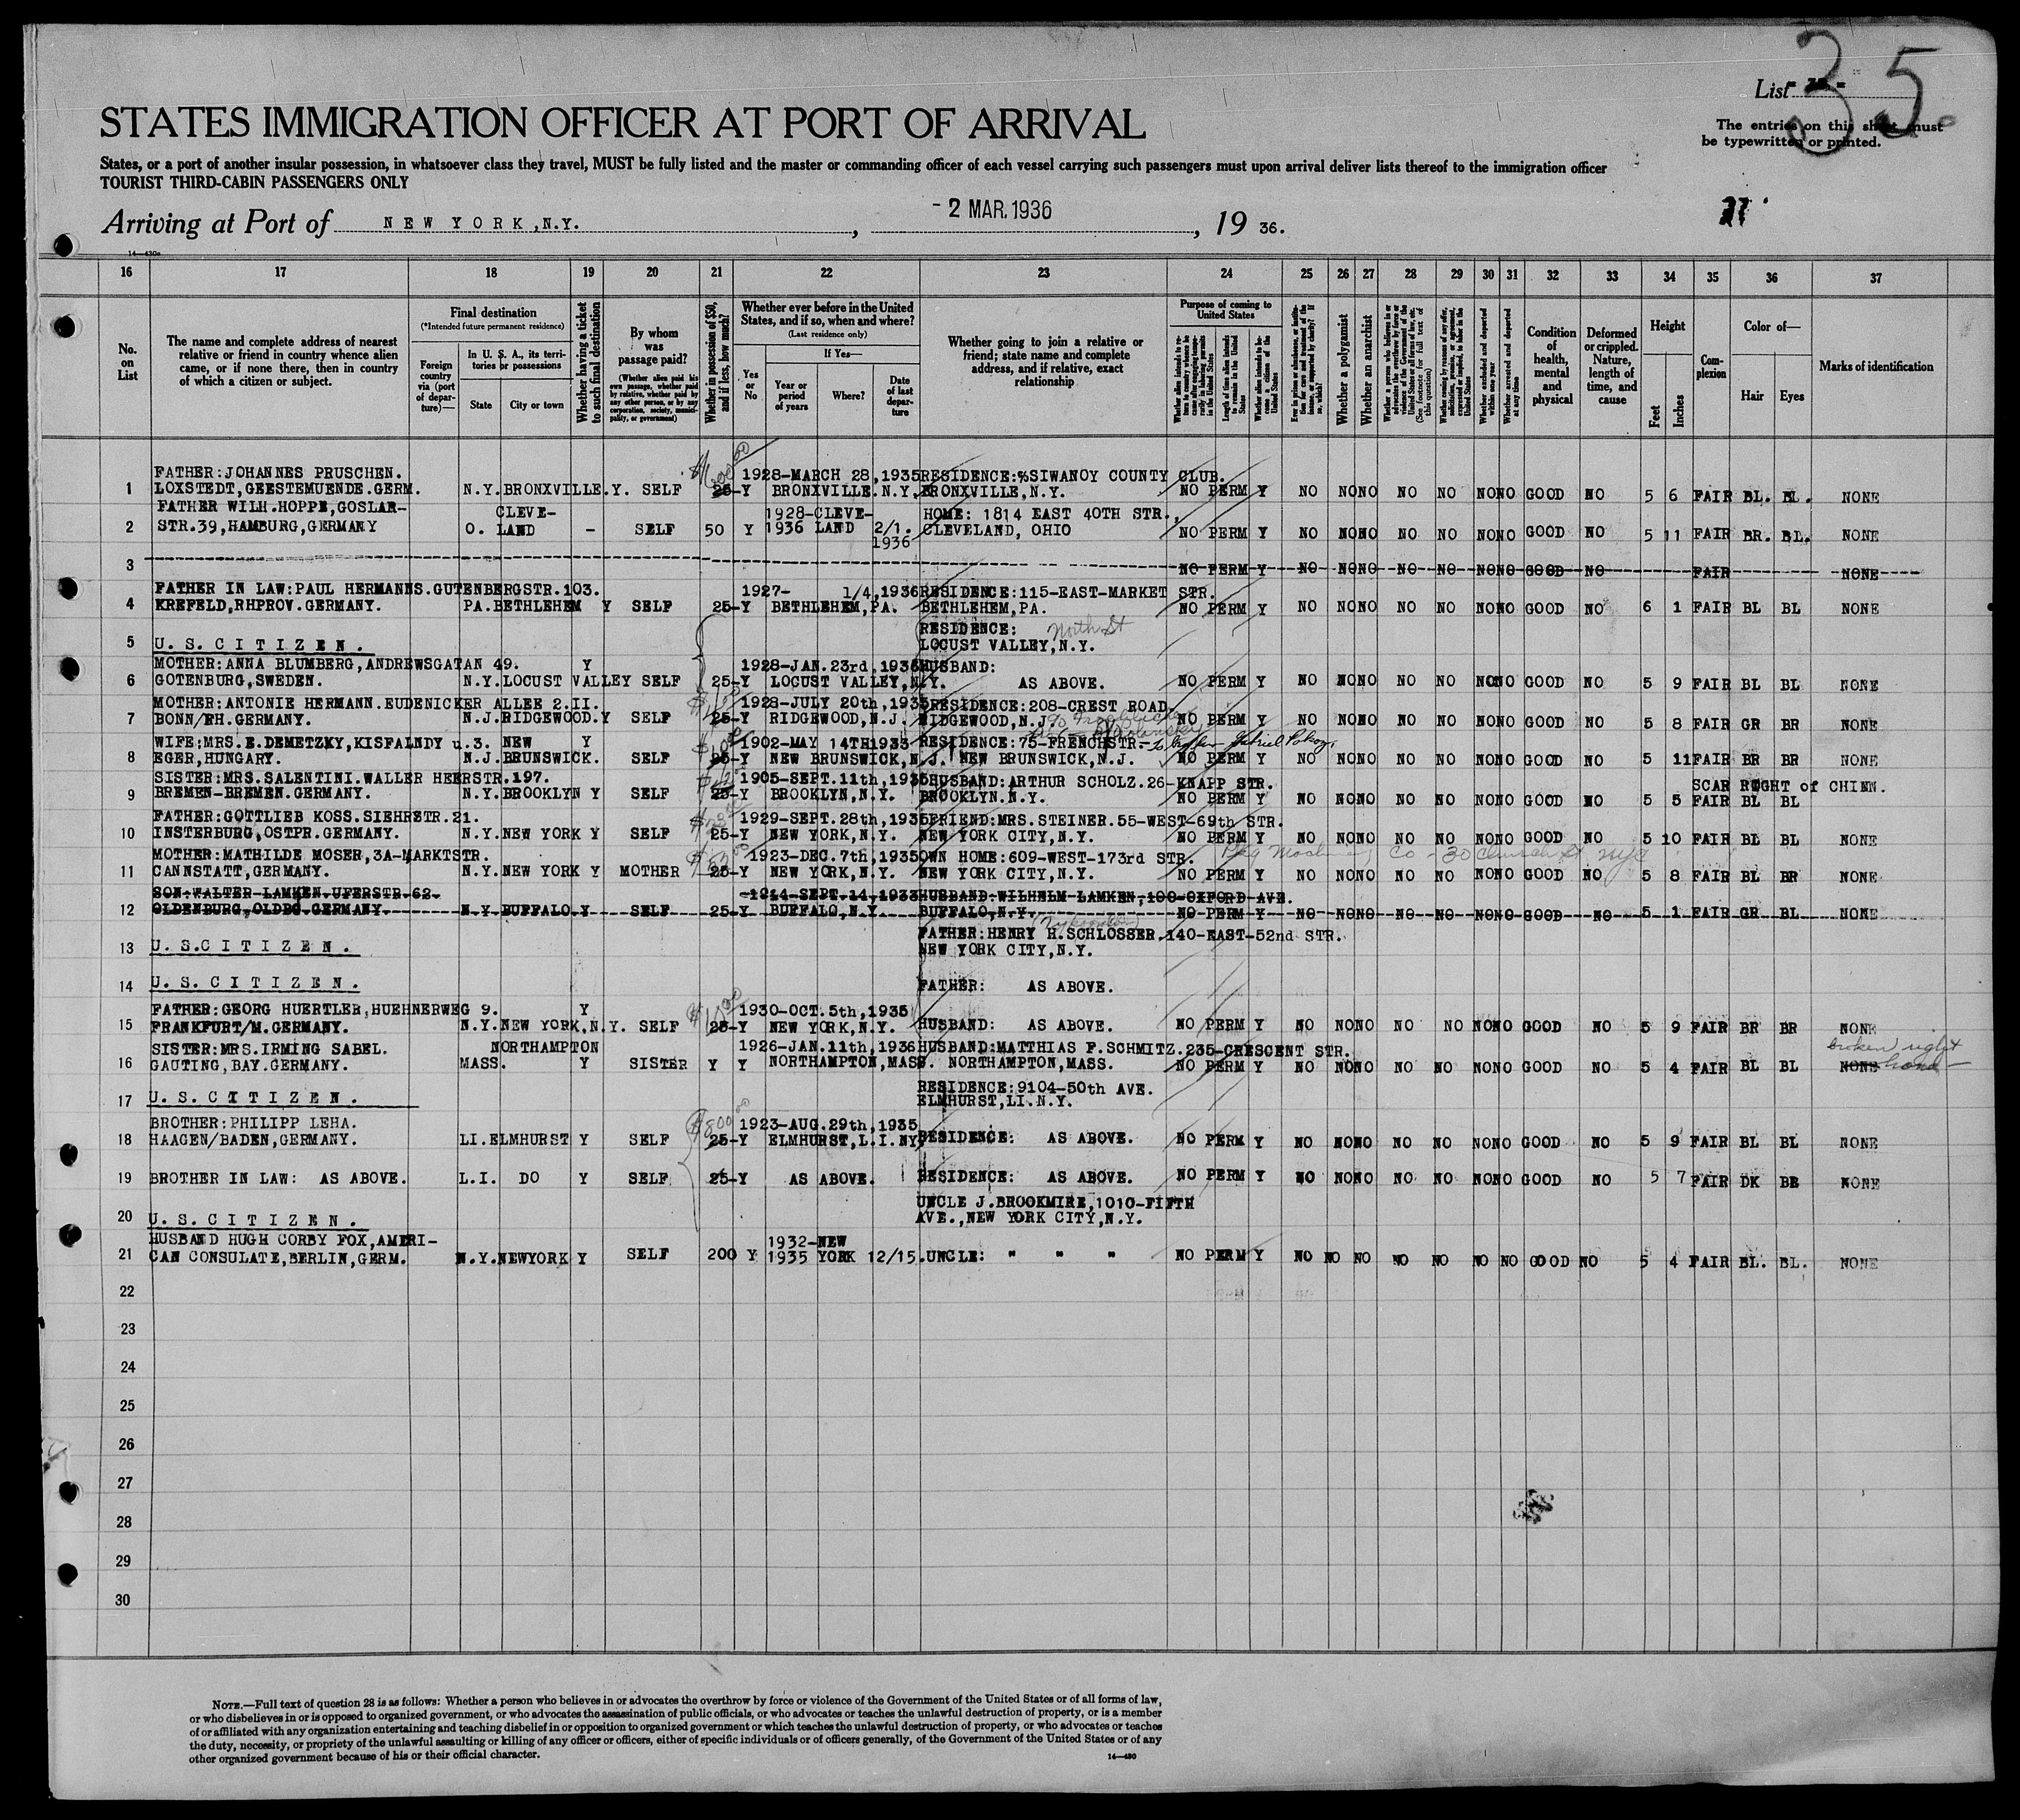 List
35.
The entries on this sheet must
be typewritten or printed.
STATES IMMIGRATION OFFICER AT PORT OF ARRIVAL
States, or a port of another insular possession, in whatsoever class they travel, MUST be fully listed and the master or commanding officer of each vessel carrying such passengers must upon arrival deliver lists thereof to the immigration officer
TOURIST THIRD-CABIN PASSENGERS ONLY
Arriving at Port of NEW YORK, N.Y. , - 2 MAR. 1936 , 19 36.
14—430a
16 17 18 19 20 21 22 23 24 25 26 27 28 29 30 31 32 33 34 35 36 37
No. on List
The name and complete address of nearest relative or friend in country whence alien came, or if none there, then in country of which a citizen or subject.
Final destination
(*Intended future permanent residence)
Foreign country via (port of departure)—
In U. S. A., its territories or possessions
State
City or town
Whether having a ticket to such final destination
By whom was passage paid?
(Whether alien paid his own passage, whether paid by relative, whether paid by any other person, or by any corporation, society, municipality, or government)
Whether in possession of $50, and if less, how much?
Whether ever before in the United States, and if so, when and where?
(Last residence only)
Yes or No
If Yes—
Year or period of years
Where?
Date of last departure
Whether going to join a relative or friend; state name and complete address, and if relative, exact relationship
Purpose of coming to United States
Length of time alien intends to remain in the United States
Whether alien intends to become a citizen of the United States
Whether a polygamist
Whether an anarchist
(See footnote for full text of this question)
Whether excluded and deported within one year
Whether arrested and deported at any time
Condition of health, mental and physical
Deformed or crippled. Nature, length of time, and cause
Height
Feet
Inches
Complexion
Color of—
Hair
Eyes
Marks of identification
FATHER:JOHANNES PRUSCHEN. 1928-MARCH 28,1935 RESIDENCE:%SIWANOY COUNTY CLUB.
1 LOXSTEDT,GEESTEMUENDE.GERM. N.Y.BRONXVILLE.Y. SELF 25-Y BRONXVILLE.N.Y. BRONXVILLE,N.Y. NO PERM Y NO NONO NO NO NONO GOOD NO 5 6 FAIR BL. BL. NONE
FATHER WILH.HOPPE,GOSLAR- CLEVE- 1928-CLEVE- HOME: 1814 EAST 40TH STR.,
2 STR.39,HAMBURG,GERMANY O. LAND - SELF 50 Y 1936 LAND 2/1. 1936 CLEVELAND, OHIO NO PERM Y NO NONO NO NO NONO GOOD NO 5 11 FAIR BR. BL. NONE
3 NO PERM Y NO NONO NO NO NONO GOOD NO FAIR NONE
FATHER IN LAW:PAUL HERMANNS.GUTENBERGSTR.103. 1927- 1/4,1936 RESIDENCE:115-EAST-MARKET STR.
4 KREFELD,RHPROV.GERMANY. PA.BETHLEHEM Y SELF 25-Y BETHLEHEM,PA. BETHLEHEM,PA. NO PERM Y NO NONO NO NO NONO GOOD NO 6 1 FAIR BL BL NONE
RESIDENCE: North St
5 U.S.CITIZEN. LOCUST VALLEY,N.Y.
MOTHER:ANNA BLUMBERG,ANDREWSGATAN 49. Y 1928-JAN.23rd,1936 HUSBAND:
6 GOTENBURG,SWEDEN. N.Y.LOCUST VALLEY SELF 25-Y LOCUST VALLEY,N.Y. AS ABOVE. NO PERM Y NO NONO NO NO NONO GOOD NO 5 9 FAIR BL BL NONE
MOTHER:ANTONIE HERMANN.EUDENICKER ALLEE 2.II. 1928-JULY 20th,1935 RESIDENCE:208-CREST ROAD.
7 BONN/RH.GERMANY. N.J.RIDGEWOOD.Y SELF 25-Y RIDGEWOOD,N.J. RIDGEWOOD,N.J. NO PERM Y NO NONO NO NO NONO GOOD NO 5 8 FAIR GR BR NONE
WIFE:MRS.E.DEMETZKY,KISFALNDY u.3. NEW Y 1902-MAY 14TH1933 RESIDENCE:75-FRENCHSTR-
8 EGER,HUNGARY. N.J.BRUNSWICK. SELF 25-Y NEW BRUNSWICK,N.J. NEW BRUNSWICK,N.J. NO PERM Y NO NONO NO NO NONO GOOD NO 5 11 FAIR BR BR NONE
SISTER:MRS.SALENTINI.WALLER HEERSTR.197. 1905-SEPT.11th,1935 HUSBAND:ARTHUR SCHOLZ.26-KNAPP STR. SCAR RIGHT of CHINN.
9 BREMEN-BREMEN.GERMANY. N.Y.BROOKLYN Y SELF 25-Y BROOKLYN,N.Y. BROOKLYN.N.Y. NO PERM Y NO NONO NO NO NONO GOOD NO 5 5 FAIR BL BL
FATHER:GOTTLIEB KOSS.SIEHRSTR.21. 1929-SEPT.28th,1935 FRIEND:MRS.STEINER.55-WEST-69th STR.
10 INSTERBURG,OSTPR.GERMANY. N.Y.NEW YORK Y SELF 25-Y NEW YORK,N.Y. NEW YORK CITY,N.Y. NO PERM Y NO NONO NO NO NONO GOOD NO 5 10 FAIR BL BL NONE
MOTHER:MATHILDE MOSER,3A-MARKTSTR. 1923-DEC.7th,1935 OWN HOME:609-WEST-173rd STR. Co - 30 Church St NYC
11 CANNSTATT,GERMANY. N.Y.NEW YORK Y MOTHER 25-Y NEW YORK,N.Y. NEW YORK CITY,N.Y. NO PERM Y NO NONO NO NO NONO GOOD NO 5 8 FAIR BL BR NONE
SON:WALTER LAMKEN.UFERSTR 62. 1914-SEPT.14,1933 HUSBAND:WILHELM LAMKEN,100-OXFORD AVE.
12 OLDENBURG,OLDBG.GERMANY. N.Y.BUFFALO.Y SELF 25-Y BUFFALO,N.Y. BUFFALO,N.Y. NO PERM Y NO NONO NO NO NONO GOOD NO 5 1 FAIR GR BL NONE
FATHER:HENRY H.SCHLOSSER.140-EAST-52nd STR.
13 U.S.CITIZEN. NEW YORK CITY,N.Y.
14 U.S.CITIZEN. FATHER: AS ABOVE.
FATHER:GEORG HUERTLER,HUEHNERWEG 9. Y 1930-OCT.5th,1935
15 FRANKFURT/M.GERMANY. N.Y.NEW YORK,N.Y. SELF 25-Y NEW YORK,N.Y. HUSBAND: AS ABOVE. NO PERM Y NO NONO NO NO NONO GOOD NO 5 9 FAIR BR BR NONE
SISTER:MRS.IRMING SABEL. NORTHAMPTON 1926-JAN.11th,1936 HUSBAND:MATTHIAS F.SCHMITZ.235-CRESCENT STR. broken right
16 GAUTING,BAY.GERMANY. MASS. Y SISTER Y Y NORTHAMPTON,MASS. NORTHAMPTON,MASS. NO PERM Y NO NONO NO NO NONO GOOD NO 5 4 FAIR BL BL NONE hand
RESIDENCE:9104-50th AVE.
17 U.S.CITIZEN. ELMHURST,LI.N.Y.
BROTHER:PHILIPP LEHA. $800.00 1923-AUG.29th,1935
18 HAAGEN/BADEN,GERMANY. LI.ELMHURST Y SELF 25-Y ELMHURST,L.I.NY. RESIDENCE: AS ABOVE. NO PERM Y NO NONO NO NO NONO GOOD NO 5 9 FAIR BL BL NONE
19 BROTHER IN LAW: AS ABOVE. L.I. DO Y SELF 25-Y AS ABOVE. RESIDENCE: AS ABOVE. NO PERM Y NO NONO NO NO NONO GOOD NO 5 7 FAIR DK BR NONE
UNCLE J.BROOKMIRE,1010-FIFTH
20 U.S.CITIZEN. AVE.,NEW YORK CITY,N.Y.
HUSBAND HUGH CORBY FOX,AMERI- 1932-NEW
21 CAN CONSULATE,BERLIN,GERM. N.Y.NEWYORK Y SELF 200 Y 1935 YORK 12/15. UNCLE: " " " NO PERM Y NO NO NO NO NO NO NO GOOD NO 5 4 FAIR BL. BL. NONE
22
23
24
25
26
27
28
29
30
NOTE.—Full text of question 28 is as follows: Whether a person who believes in or advocates the overthrow by force or violence of the Government of the United States or of all forms of law,
or who disbelieves in or is opposed to organized government, or who advocates the assassination of public officials, or who advocates or teaches the unlawful destruction of property, or is a member
of or affiliated with any organization entertaining and teaching disbelief in or opposition to organized government or which teaches the unlawful destruction of property, or who advocates or teaches
the duty, necessity, or propriety of the unlawful assaulting or killing of any officer or officers, either of specific individuals or of officers generally, of the Government of the United States or of any
other organized government because of his or their official character.
14—430